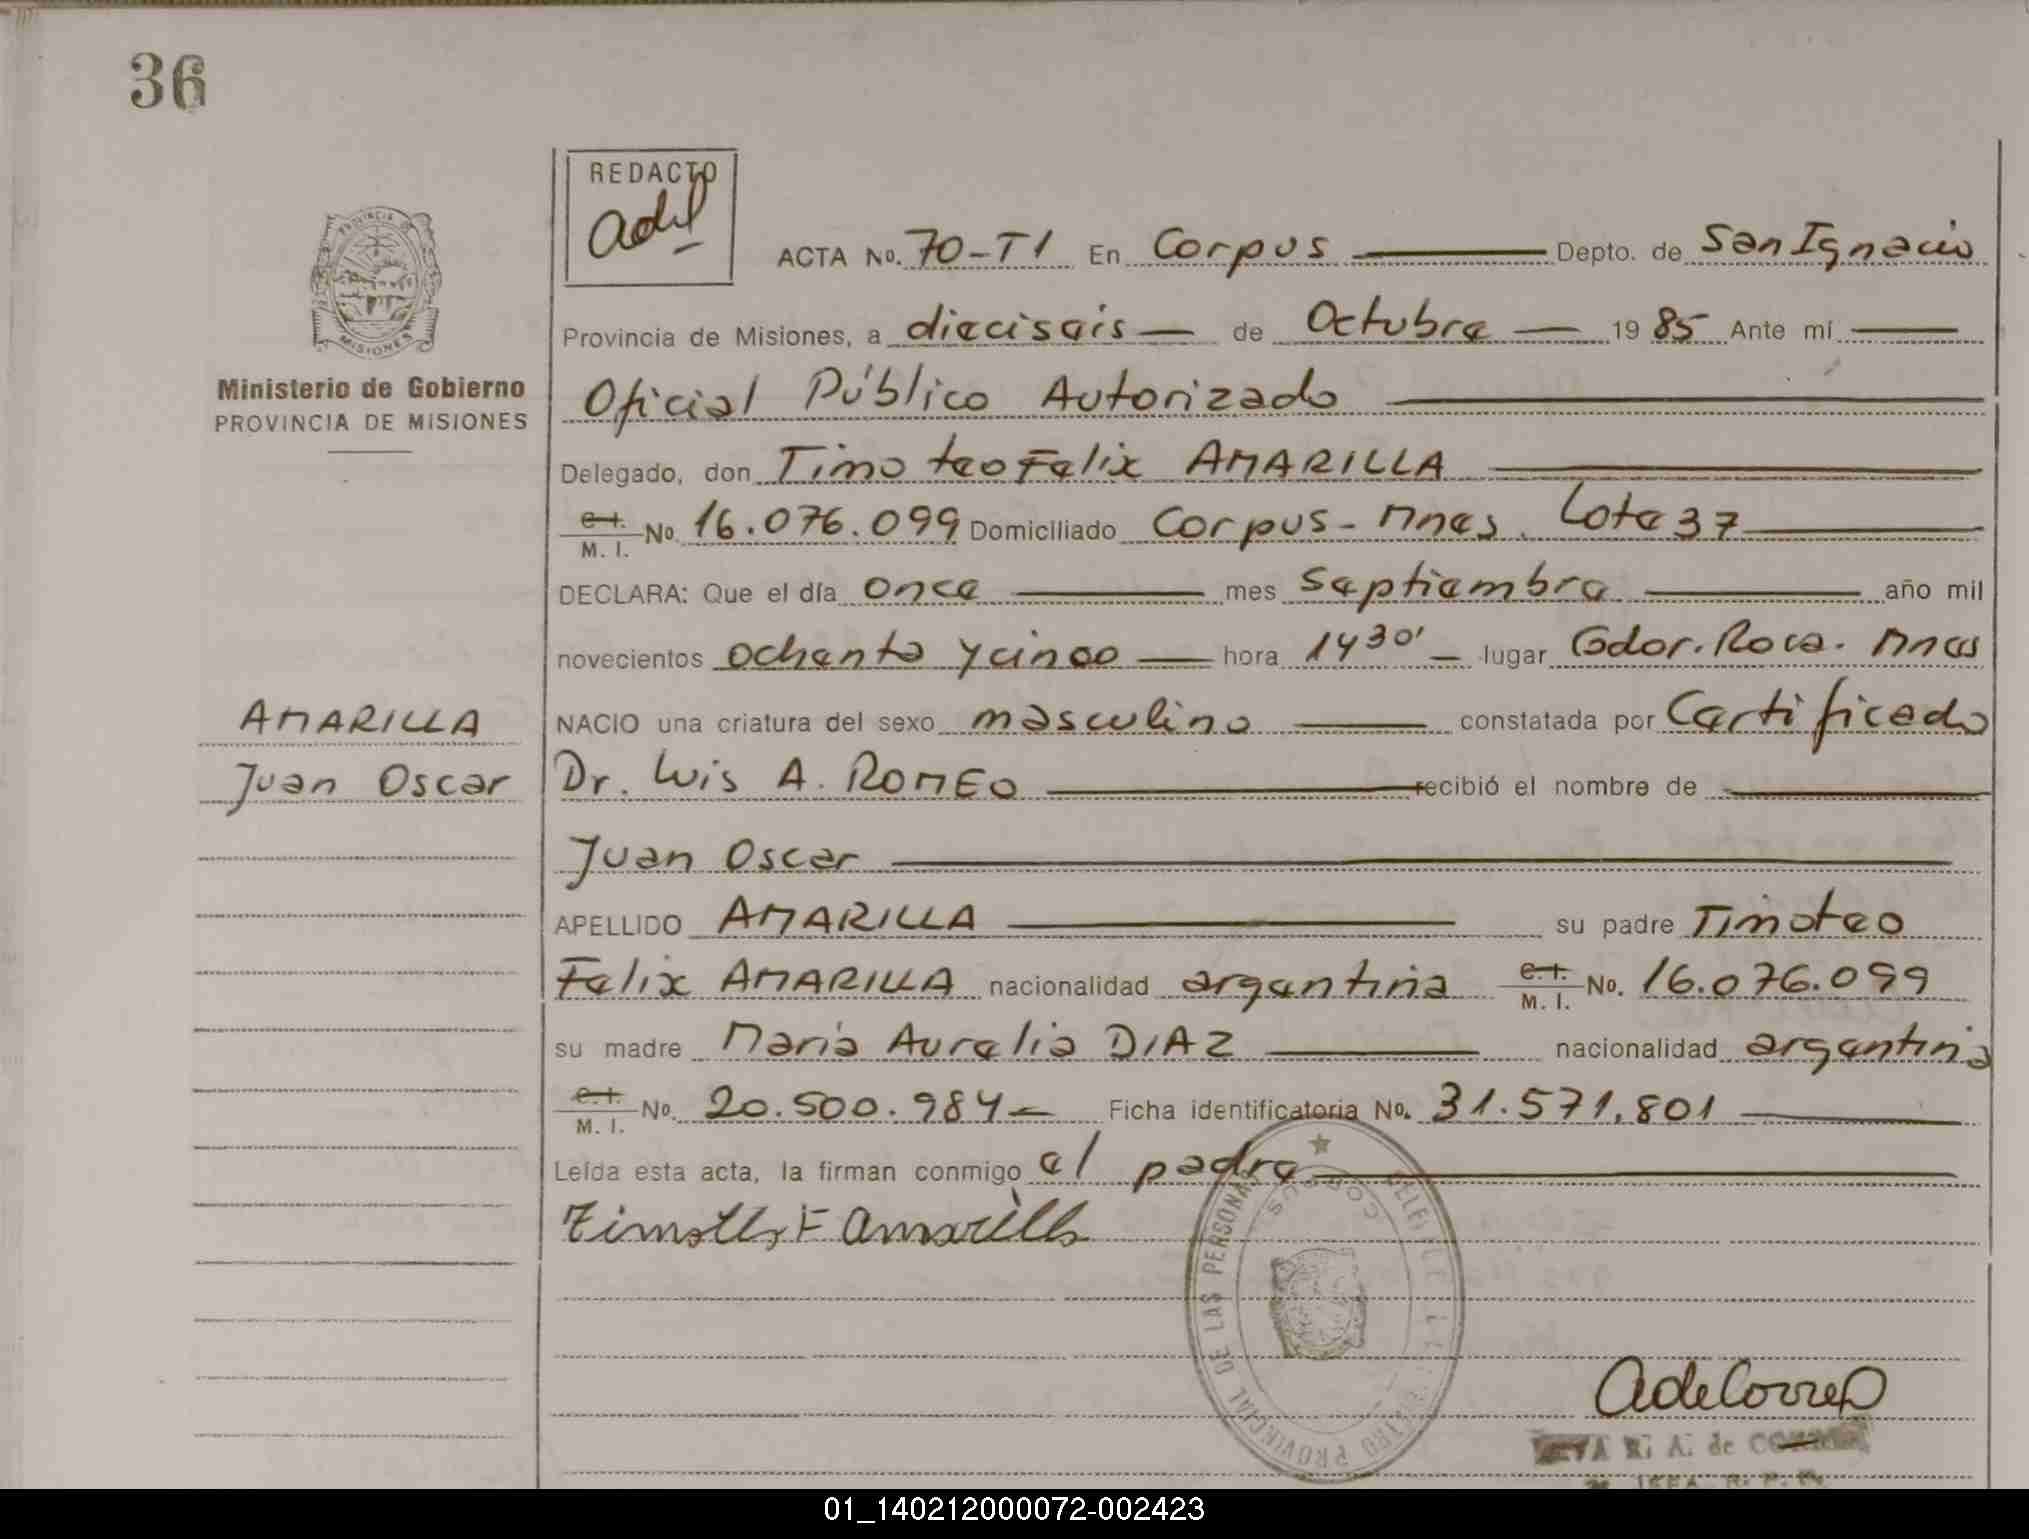 36
REDACTO
PROVINCIA DE
MISIONES
ACTA No. 70-T1 En Corpus Depto. de San Ignacio
Provincia de Misiones, a dieciseis de Octubre 1985 Ante mí
Ministerio de Gobierno
PROVINCIA DE MISIONES
Oficial Público Autorizado
Delegado, don Timoteo Felix AMARILLA
C.I. M. I. No. 16.076.099 Domiciliado Corpus - Mnes. Lote 37
DECLARA: Que el día once mes septiembre año mil
novecientos ochenta y cinco hora 14 30' lugar Gdor. Roca. Mnes
AMARILLA
NACIO una criatura del sexo masculino constatada por Certificado
Juan Oscar
Dr. Luis A. ROMEO recibió el nombre de
Juan Oscar
APELLIDO AMARILLA su padre Timoteo
Felix AMARILLA nacionalidad argentina C.I. M. I. No. 16.076.099
su madre Maria Aurelia DIAZ nacionalidad argentina
C.I. M. I. No. 20.500.984 Ficha identificatoria No. 31.571.801
Leída esta acta, la firman conmigo el padre
Timoteo F Amarilla
PROVINCIAL DE LAS PERSONAS
CORPUS
A. de
01_140212000072-002423